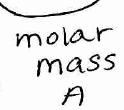 molar
mass
A